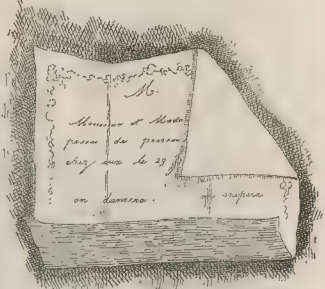 M.
Monsieur et Mada
prient de
chez eux le 29
on dansera.
soupera